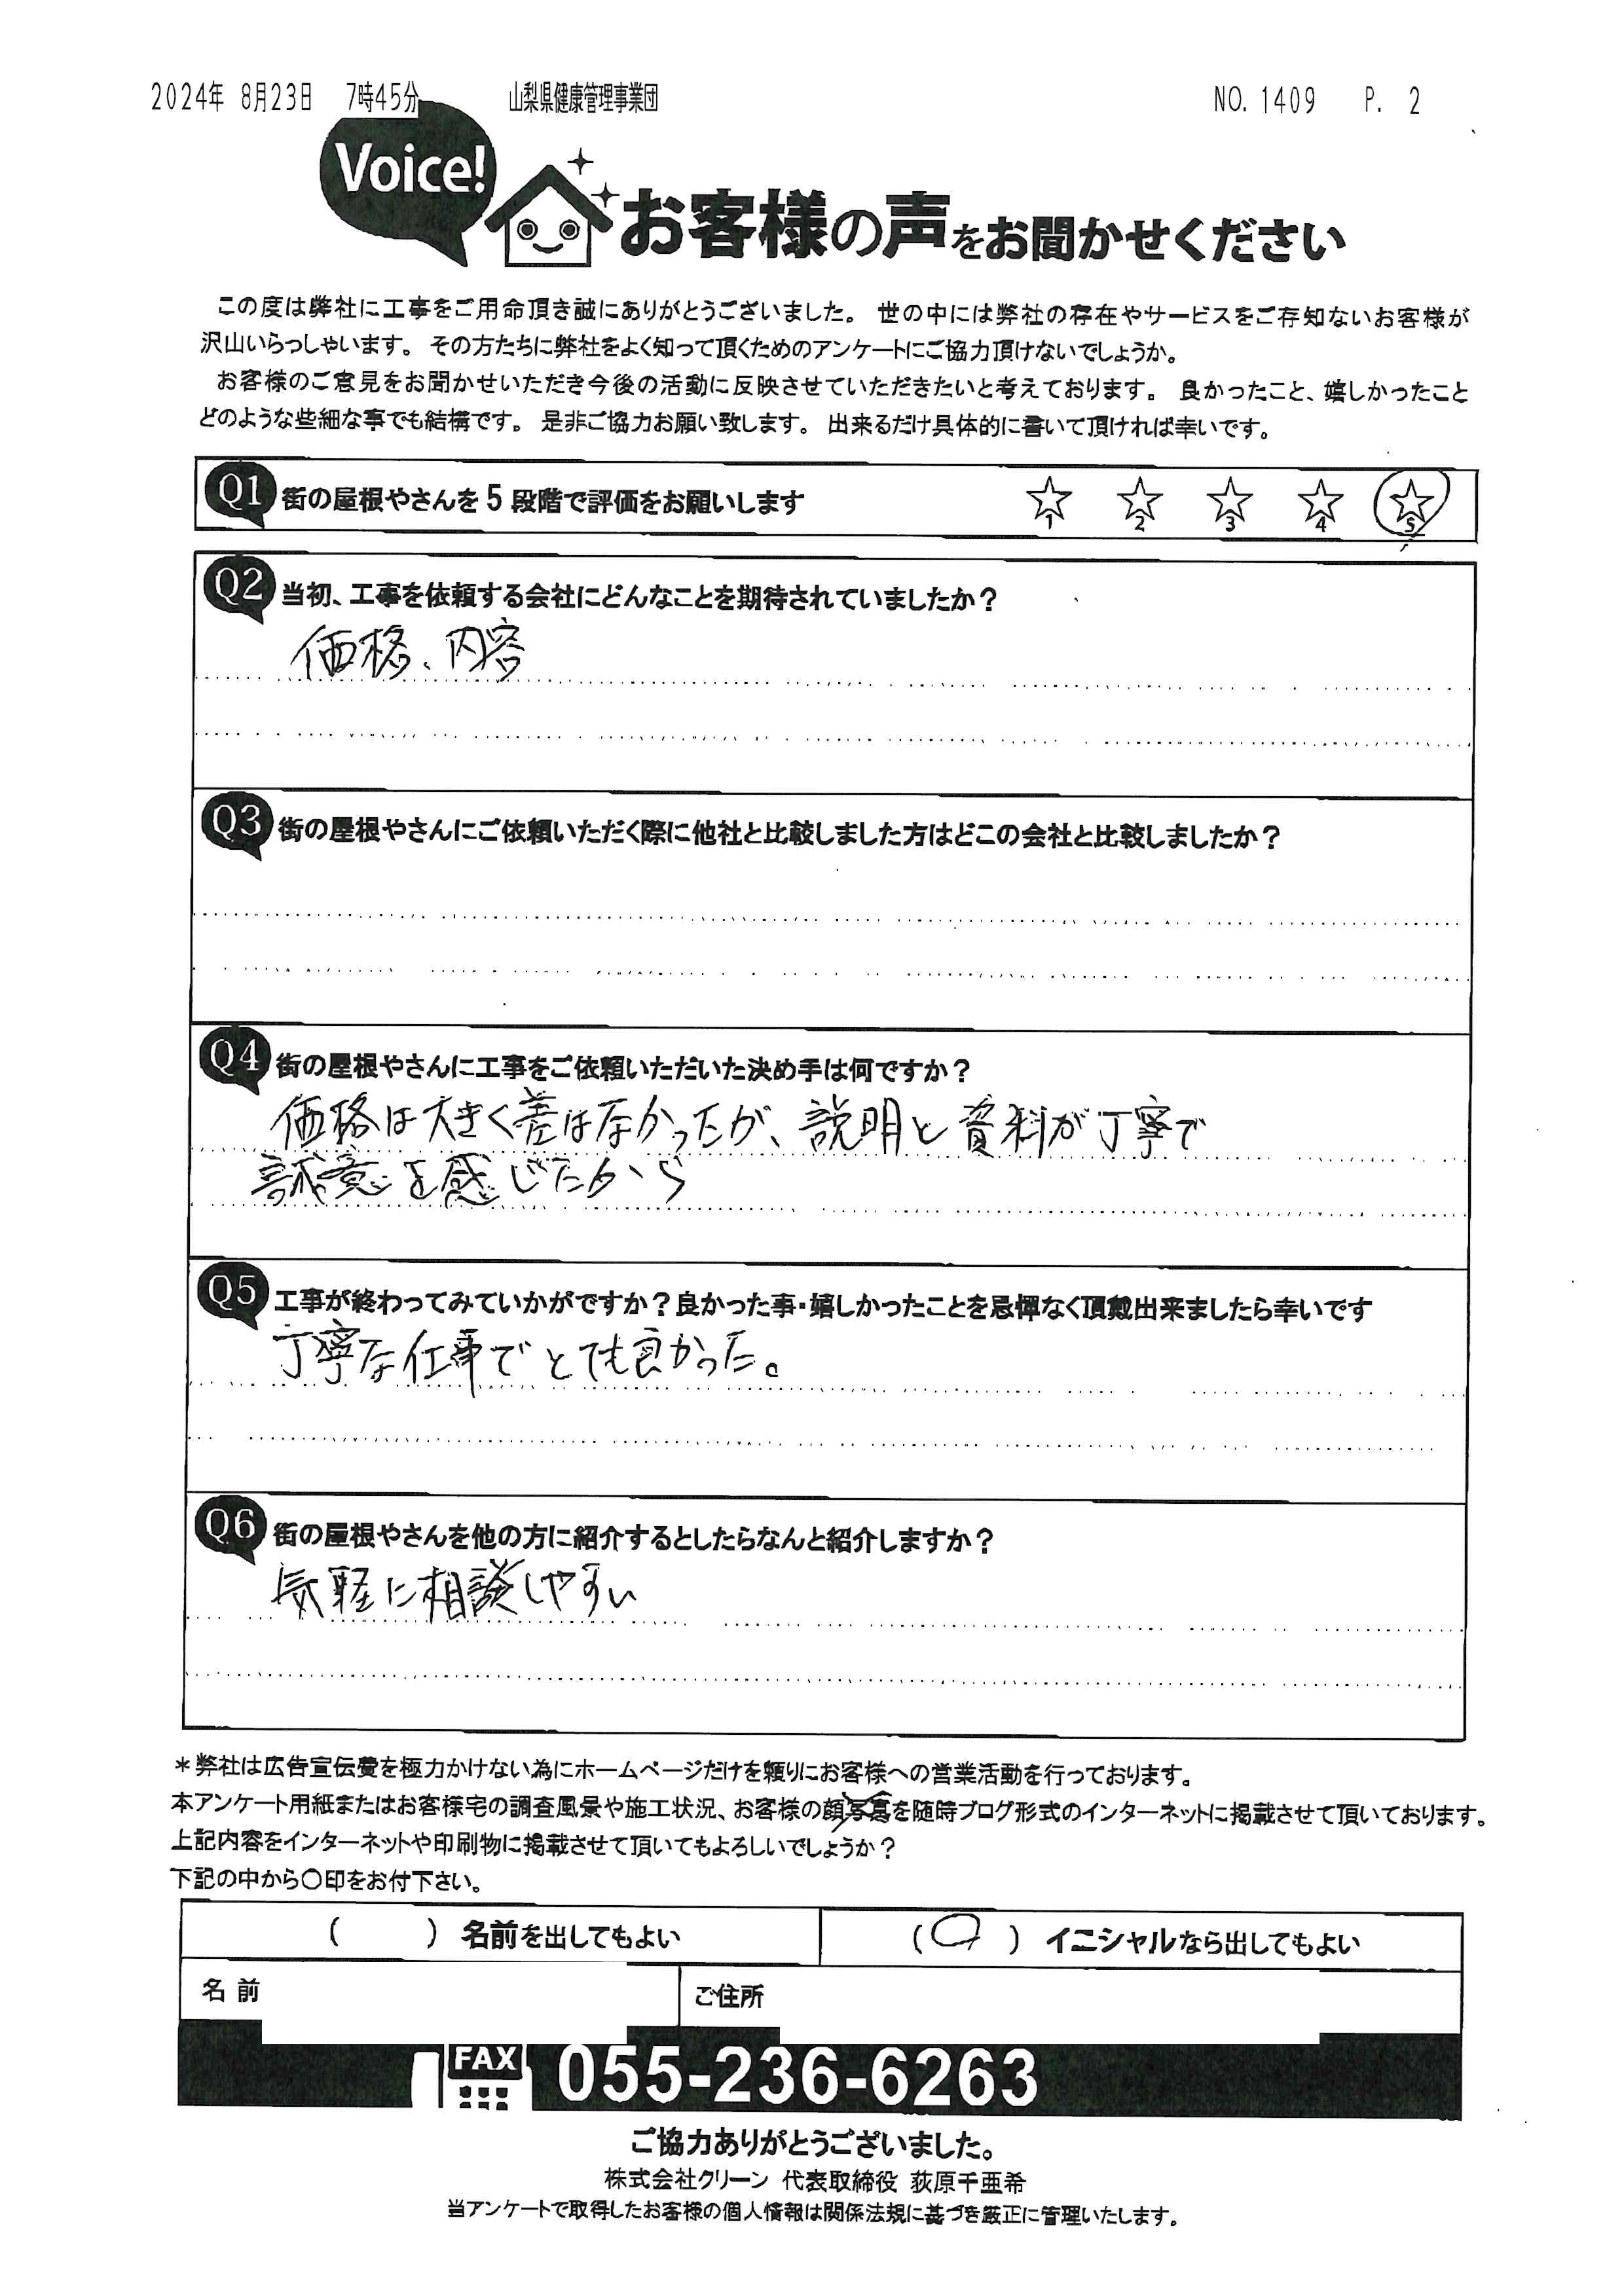 2024年 8月23日 7時45分 山梨県健康管理事業団 NO.1409 P. 2
Voice!
お客様の声をお聞かせください
この度は弊社に工事をご用命頂き誠にありがとうございました。世の中には弊社の存在やサービスをご存知ないお客様が
沢山いらっしゃいます。その方たちに弊社をよく知って頂くためのアンケートにご協力頂けないでしょうか。
お客様のご意見をお聞かせいただき今後の活動に反映させていただきたいと考えております。良かったこと、嬉しかったこと
どのような些細な事でも結構です。是非ご協力お願い致します。出来るだけ具体的に書いて頂ければ幸いです。
Q1 街の屋根やさんを5段階で評価をお願いします ☆1 ☆2 ☆3 ☆4 ☆5
Q2 当初、工事を依頼する会社にどんなことを期待されていましたか?
価格、内容
Q3 街の屋根やさんにご依頼いただく際に他社と比較しました方はどこの会社と比較しましたか?
Q4 街の屋根やさんに工事をご依頼いただいた決め手は何ですか?
価格は大きく差はなかったが、説明と資料が丁寧で
誠意を感じたから
Q5 工事が終わってみていかがですか?良かった事・嬉しかったことを忌憚なく頂戴出来ましたら幸いです
丁寧な仕事でとても良かった。
Q6 街の屋根やさんを他の方に紹介するとしたらなんと紹介しますか?
気軽に相談しやすい
*弊社は広告宣伝費を極力かけない為にホームページだけを頼りにお客様への営業活動を行っております。
本アンケート用紙またはお客様宅の調査風景や施工状況、お客様の顔写真を随時ブログ形式のインターネットに掲載させて頂いております。
上記内容をインターネットや印刷物に掲載させて頂いてもよろしいでしょうか?
下記の中から○印をお付下さい。
( ) 名前を出してもよい (○) イニシャルなら出してもよい
名前 ご住所
FAX 055-236-6263
ご協力ありがとうございました。
株式会社クリーン 代表取締役 荻原千亜希
当アンケートで取得したお客様の個人情報は関係法規に基づき厳正に管理いたします。